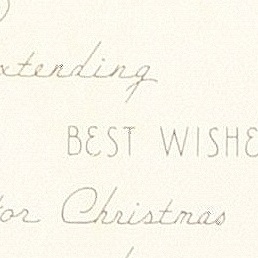 xtending
BEST WISHE
for Christmas